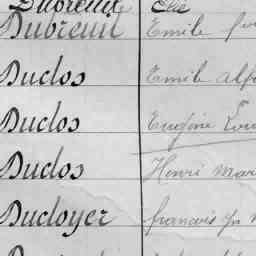 Dubreuil Elie
Dubreuil Emile
Duclos Emile Alf
Duclos Eugène Lou
Duclos Henri Mar
Ducloyer francois